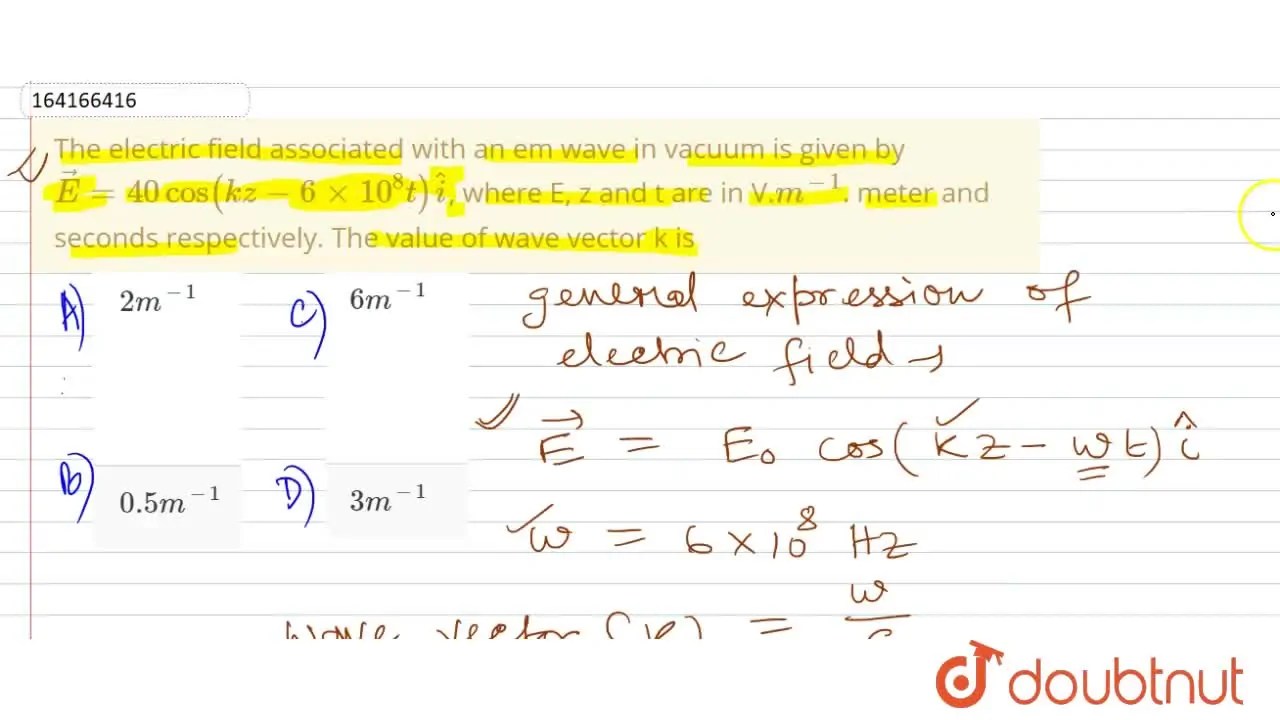 164166416
The electric field associated with an em wave in vacuum is given by
$\vec{E} = 40 \cos(kz - 6 \times 10^8 t)\hat{i}$, where E, z and t are in V.$m^{-1}$. meter and
seconds respectively. The value of wave vector k is
A) $2m^{-1}$
C) $6m^{-1}$
B) $0.5m^{-1}$
D) $3m^{-1}$
general expression of
electric field →
$\vec{E} = E_0 \cos(kz - wt)\hat{i}$
$w = 6 \times 10^8$ Hz
wave vector (k) = $\frac{w}{c}$
doubtnut